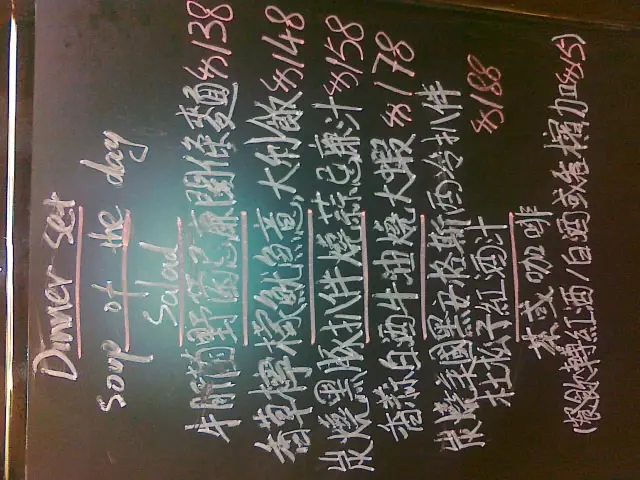 Dinner set
soup of the day
Salad
牛肝菌野菌忌廉闊條麵 $138
香草檸檬魷魚意大利飯 $148
炭燒黑豚扒伴燒蒜忌廉汁 $158
香蒜白酒牛油燒大蝦 $178
炭燒美國黑安格斯西冷扒伴
杜松子紅酒汁 $188
茶或咖啡
(餐飲轉紅酒/白酒或 加$15)